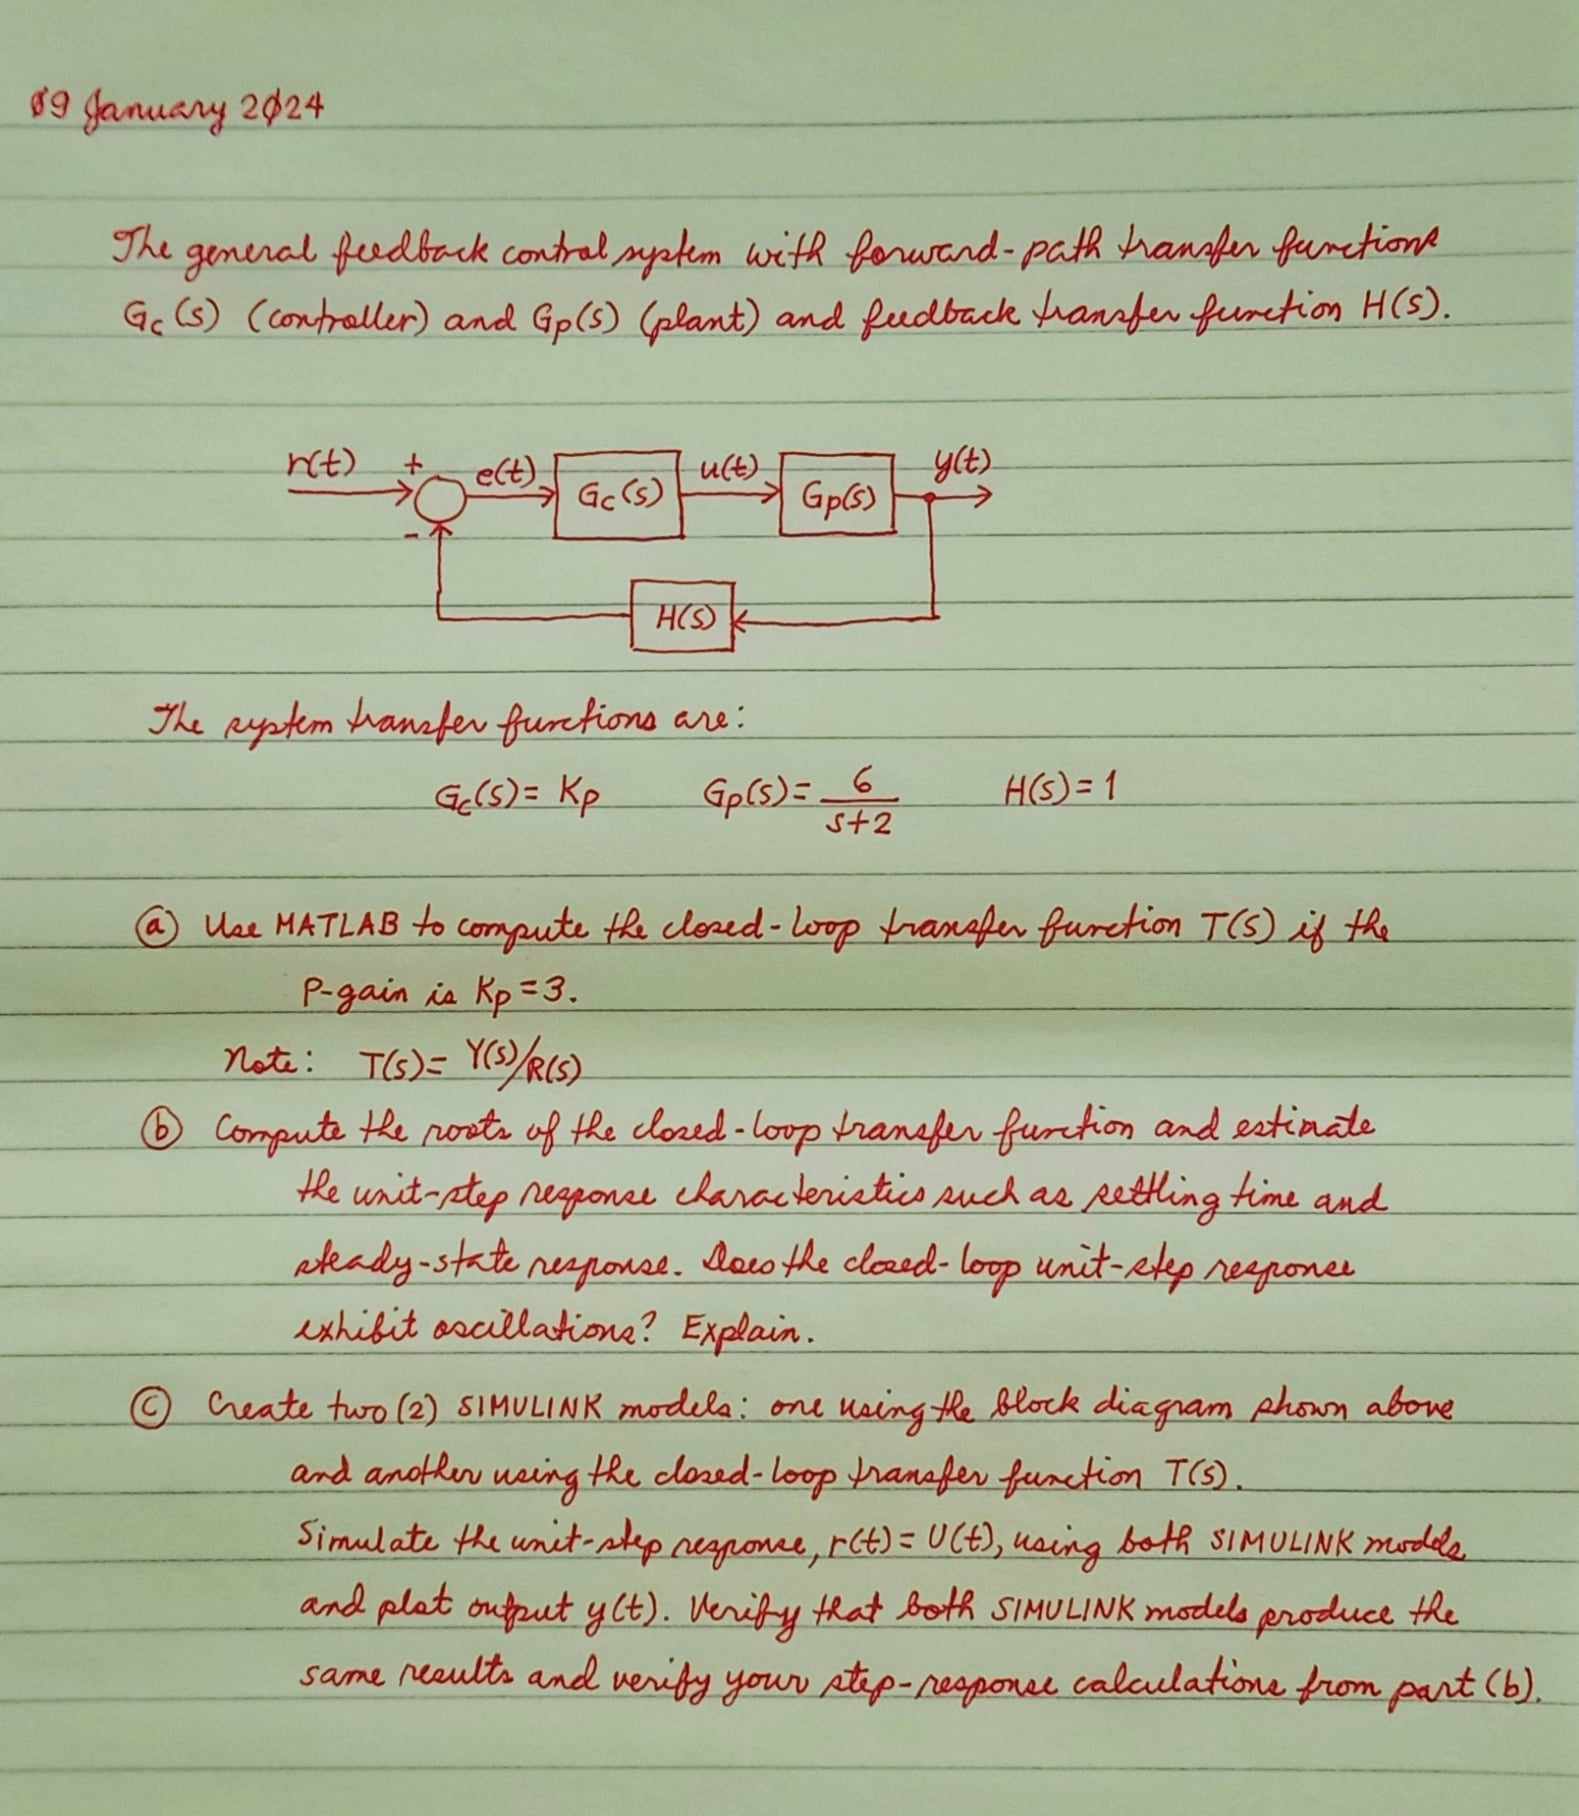 09 January 2024
The general feedback control system with forward-path transfer functions
Gc(s) (controller) and Gp(s) (plant) and feedback transfer function H(s).
r(t) + e(t) Gc(s) u(t) Gp(s) y(t)
-
H(s)
The system transfer functions are:
Gc(s)= Kp Gp(s)= 6/(s+2) H(s)=1
ⓐ Use MATLAB to compute the closed-loop transfer function T(s) if the
P-gain is Kp=3.
Note: T(s)= Y(s)/R(s)
ⓑ Compute the roots of the closed-loop transfer function and estimate
the unit-step response characteristics such as settling time and
steady-state response. Does the closed-loop unit-step response
exhibit oscillations? Explain.
ⓒ Create two (2) SIMULINK models: one using the block diagram shown above
and another using the closed-loop transfer function T(s).
Simulate the unit-step response, r(t)=U(t), using both SIMULINK models
and plot output y(t). Verify that both SIMULINK models produce the
same results and verify your step-response calculations from part (b).